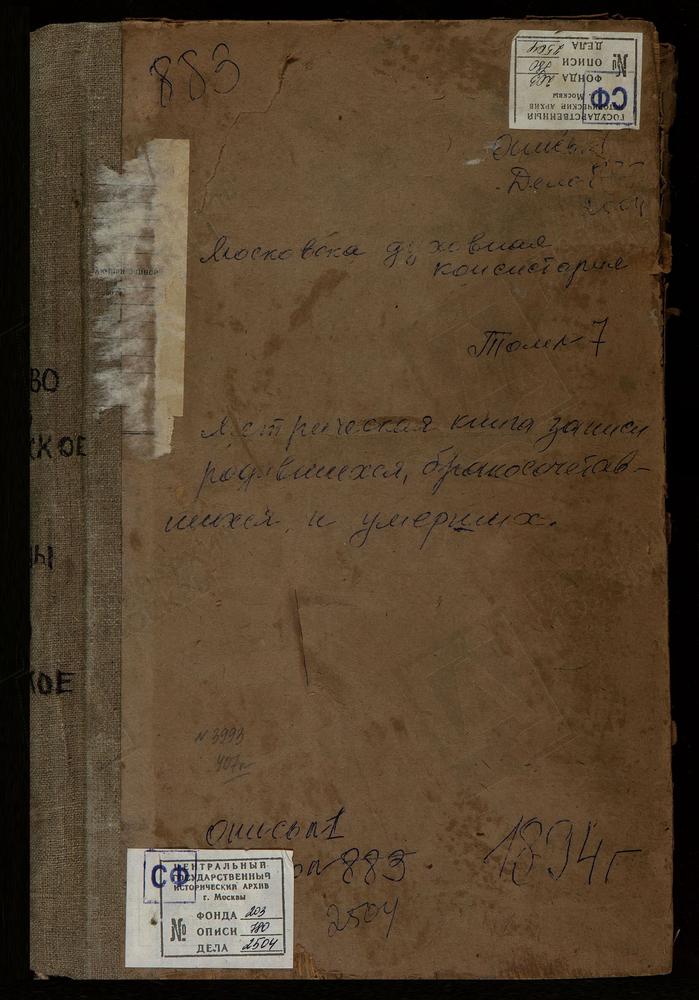 883
ГОСУДАРСТВЕННЫЙ
ИСТОРИЧЕСКИЙ АРХИВ
г. Москвы
СФ
№
ФОНДА 203
ОПИСИ 780
ДЕЛА 2504
Опись 1
Дело
2504
Московска духовная
консистория
Том № 7
родившихся, бракосочетав-
шихся и умерших.
книга записи
ВО
СКОЕ
Ы
КОЕ
N 3993
407л
опись №1
№ 883
1894 г
2504
СФ
ЦЕНТРАЛЬНЫЙ
ГОСУДАРСТВЕННЫЙ
ИСТОРИЧЕСКИЙ АРХИВ
г. Москвы
№
ФОНДА 203
ОПИСИ 780
ДЕЛА 2504